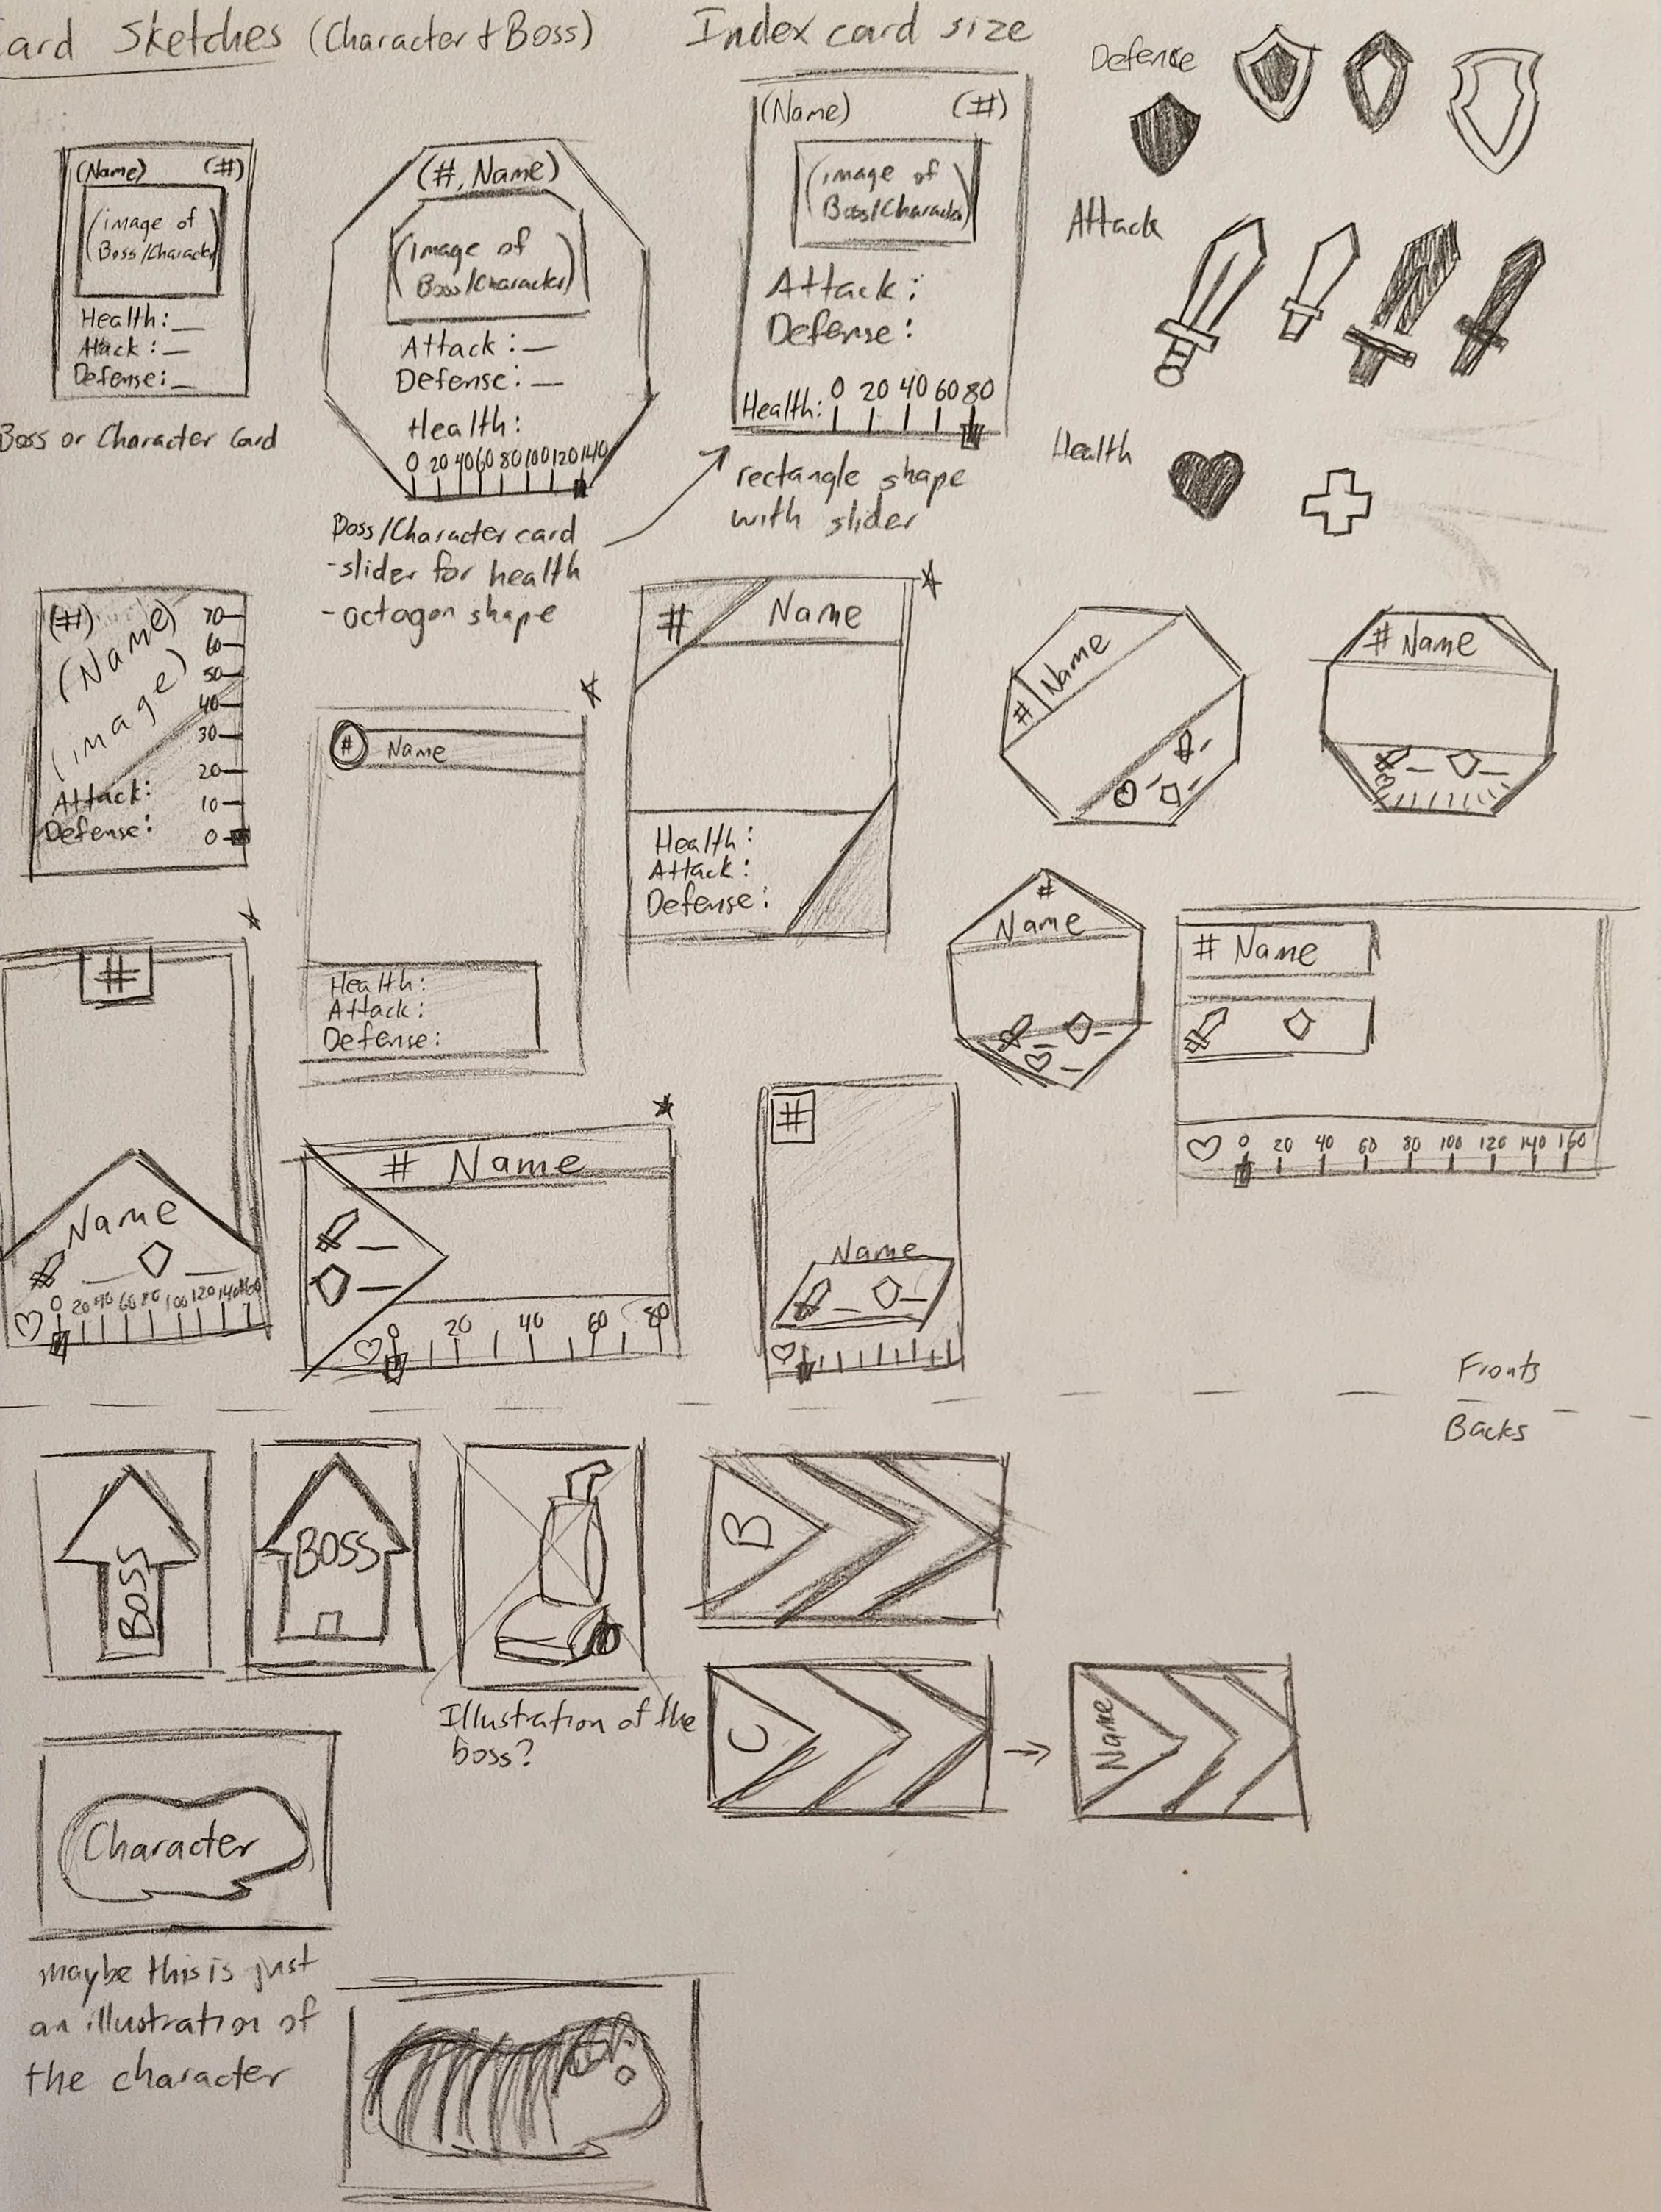 ard Sketches (Character + Boss)
Index card size
(Name) (#)
(image of
Boss/Character)
Health:_
Attack:_
Defense:_
Boss or Character Card
(#, Name)
(image of
Boss/Character)
Attack:_
Defense:_
Health:
0 20 40 60 80 100 120 140
Boss/Character card
-slider for health
-octagon shape
(Name) (#)
(image of
Boss/Character)
Attack:
Defense:
Health: 0 20 40 60 80
rectangle shape
with slider
Defence
Attack
Health
(#)
(Name)
(image)
Attack:
Defense:
70
60
50
40
30
20
10
0
# Name
Health:
Attack:
Defense:
# Name
Health:
Attack:
Defense:
# Name
# Name
#
Name
# Name
0 20 40 60 80 100 120 140 160
#
Name
0 20 40 60 80 100 120 140 160
# Name
0 20 40 60 80
#
Name
Fronts
Backs
Boss
BOSS
Illustration of the
boss?
B
C
Name
Character
maybe this is just
an illustration of
the character